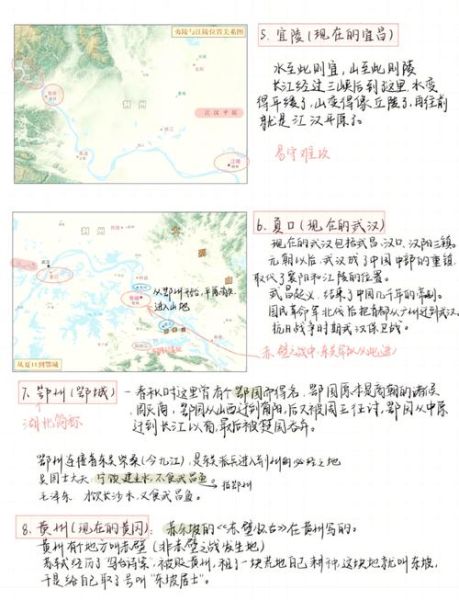 夷陵与江陵位置关系图
江汉平原
江陵
5. 宜陵(现在的宜昌)
水至此则宜,山至此则陵
长江经过三峡后到这里,水变
得平缓了,山变得像丘陵了,再往前
就是江汉平原了。
易守难攻
从夏口到鄂城
从鄂州开始,平原有快
进入山地
6. 夏口(现在的武汉)
现在的武汉包括武昌、汉口、汉阳三镇。
元朝以后,武汉成了中国中部的重镇,
取代了襄阳和江陵的位置。
武昌起义,结束了中国几千年的帝制。
国民革命军北伐后把首都从广州迁到武汉,
抗日战争时期武汉保卫战。
赤壁之战中,东吴军队从此进
7. 鄂州(鄂城) - 春秋时这里曾有个鄂国而得名,鄂国原本是商朝的诸侯
湖北简称
国,灭商,鄂国从山西迁到南阳,后又被周王征讨,鄂国从中原
迁到长江以南,最后被楚国吞并。
鄂州连接着东吴柴桑(今九江),是东吴派兵进入荆州的必经之地
吴国士大夫 宁饮建业水,不食武昌鱼。→指鄂州
毛泽东 才饮长沙水,又食武昌鱼。
8. 黄州(现在的黄冈): 苏东坡的《赤壁怀古》在黄州写的。
黄州有个地方叫赤壁(非赤壁之战发生地)
苏轼经历了"乌台诗案",被贬黄州,租了一块荒地自己耕种,这块地就叫东坡,
于是给自己取了号叫"东坡居士"。